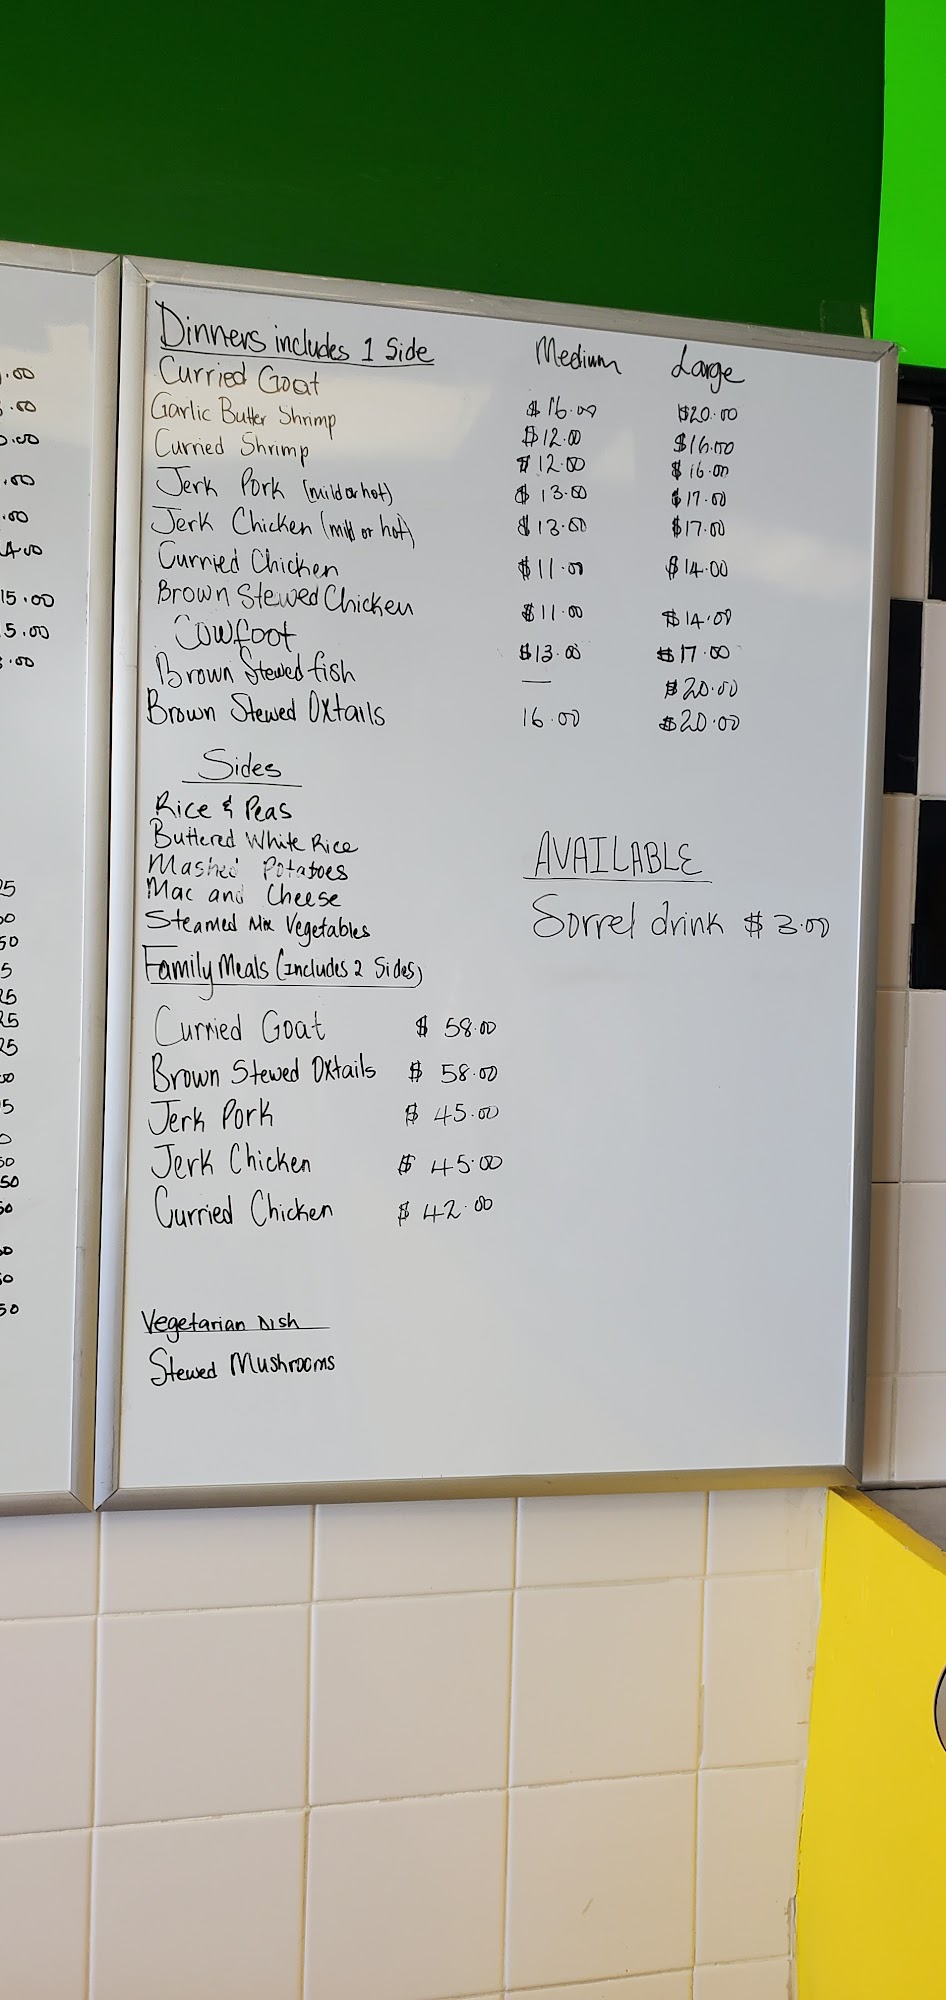 Dinners includes 1 Side Medium Large
Curried Goat $16.00 $20.00
Garlic Butter Shrimp $12.00 $16.00
Curried Shrimp $12.00 $16.00
Jerk Pork (mild or hot) $13.00 $17.00
Jerk Chicken (mild or hot) $13.00 $17.00
Curried Chicken $11.00 $14.00
Brown Stewed Chicken $11.00 $14.00
Cowfoot $13.00 $17.00
Brown Stewed fish — $20.00
Brown Stewed Oxtails 16.00 $20.00
Sides
Rice & Peas
Buttered White Rice
Mashed Potatoes
Mac and Cheese
Steamed Mix Vegetables
AVAILABLE
Sorrel drink $3.00
Family Meals (Includes 2 Sides)
Curried Goat $58.00
Brown Stewed Oxtails $58.00
Jerk Pork $45.00
Jerk Chicken $45.00
Curried Chicken $42.00
Vegetarian Dish
Stewed Mushrooms